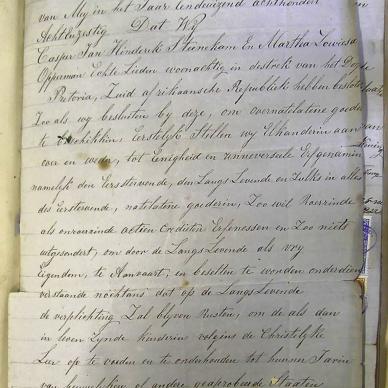 van Mey in het Jaar Eenduizend achthonderd en
Achtenzestig Dat Wy
Casper Jan Hinderik Steinekam En Martha Lowiesa
Opperman Echte Lieden woonachtig in destrek van het Dorp
Pretoria, Zuid afrikaansche Republiek hebben besloten
Zoo als wy besluiten by deze, om over natelatene goederen
te beschikken, Eerstelyk Stellen wy Elkanderin aan
over en weder, tot Eenigheid en unneverseele Erfgenamen
namelyk den Eerststervende, den Langs Levende en Zulks in alles
des Eerstervende, natelatene goederen, Zoo wil Roerende
als onroerende actien Crediten Erfenessen en Zoo niets
uitgesondert, om door de Langs Levende als vry
Eigendom, te Aanvaart, en besetten te worden onderdien
verstaande nochtans dat op de Langs Levende
de verplichting Zal blyven Rusten, om de als dan
in leven Zynde kinderen volgens de Christelyke
Leer op te voeden en te onderhouden tot hunnen Jaren
van huwelyken of andere geaprobeerde Staaten